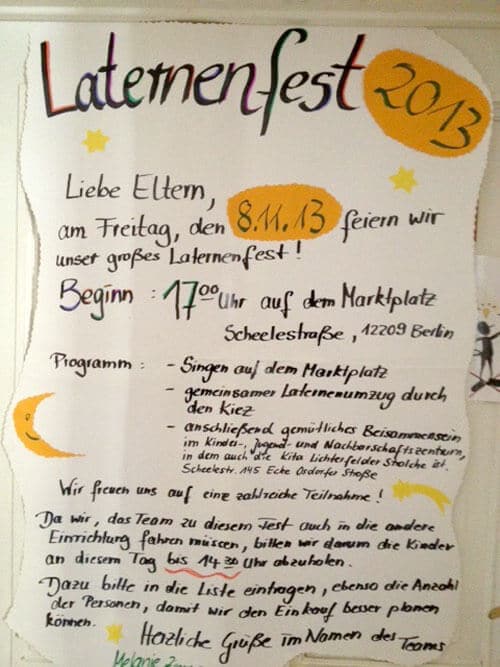 Laternenfest 2013
Liebe Eltern,
am Freitag, den 8.11.13 feiern wir
unser großes Laternenfest!
Beginn : 17⁰⁰ Uhr auf dem Marktplatz
Scheelestraße, 12209 Berlin
Programm : - Singen auf dem Marktplatz
- gemeinsamer Laternenumzug durch
den Kiez
- anschließend gemütliches Beisammensein
im Kinder-, Jugend- und Nachbarschaftszentrum,
in dem auch die Kita Lichterfelder Strolche ist.
Scheelestr. 145 Ecke Osdorfer Straße
Wir freuen uns auf eine zahlreiche Teilnahme!
Da wir, das Team zu diesem Fest auch in die andere
Einrichtung fahren müssen, bitten wir darum die Kinder
an diesem Tag bis 14³⁰ Uhr abzuholen.
Dazu bitte in die Liste eintragen, ebenso die Anzahl
der Personen, damit wir den Einkauf besser planen
können.
Herzliche Grüße im Namen des Teams
Melanie